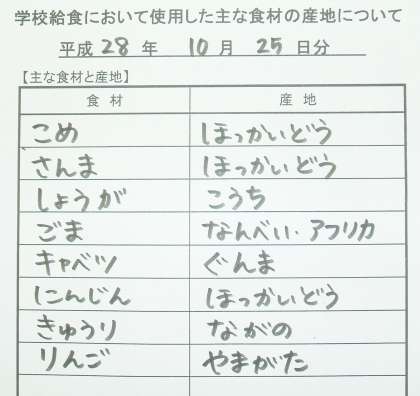 学校給食において使用した主な食材の産地について
平成 28 年 10 月 25 日分
【主な食材と産地】
食材 産地
こめ ほっかいどう
さんま ほっかいどう
しょうが こうち
ごま なんべい・アフリカ
キャベツ ぐんま
にんじん ほっかいどう
きゅうり ながの
りんご やまがた